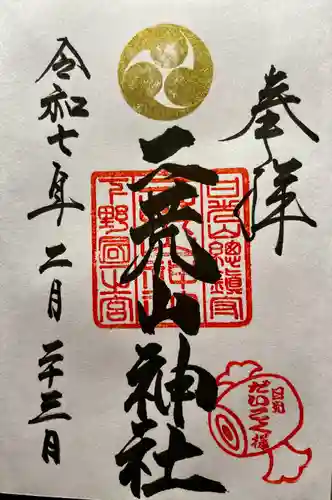 奉拝
二荒山神社
令和七年二月二十三日
日光山總鎮守
下野國一宮
日光
だいこく様